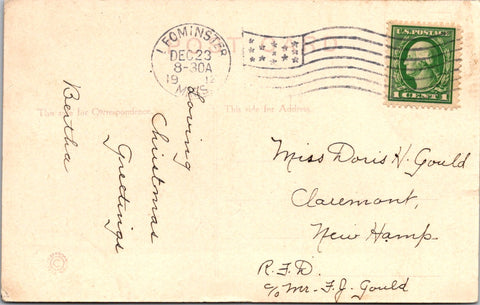 POST CARD
LEOMINSTER
DEC 23
8-30A
19 12
MASS.
U.S. POSTAGE
1 CENT 1
This side for Correspondence.
This side for Address.
Loving
Christmas
Greetings
Bertha
Miss Doris H. Gould
Claremont,
New Hamp.
R.F.D.
c/o Mr. F.J. Gould